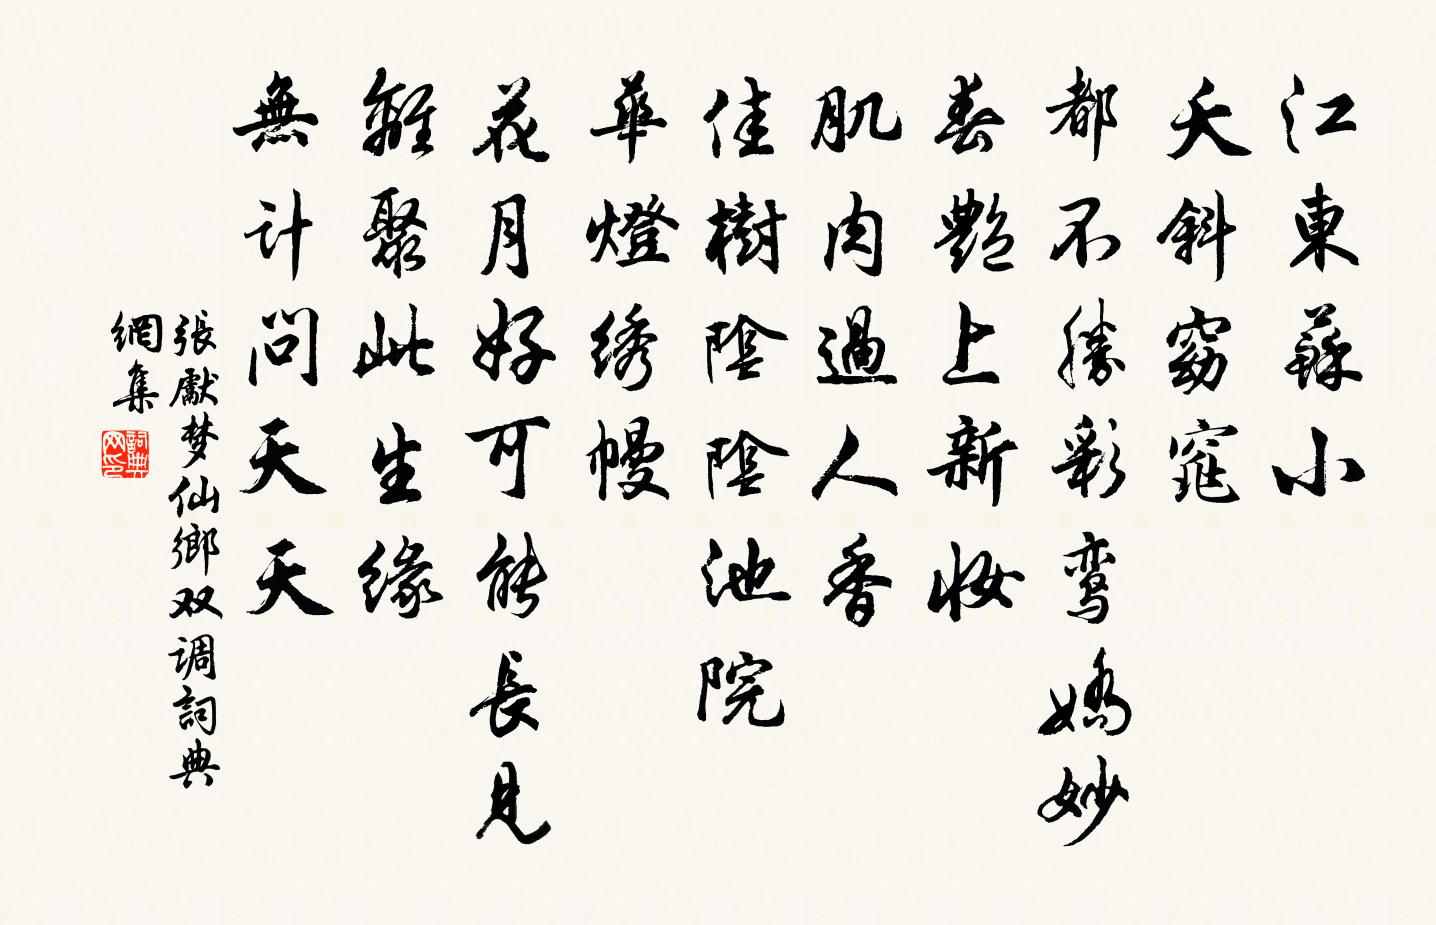 江東蘇小
夭斜窈窕
都不勝彩鸞嬌妙
春艷上新妝
肌肉過人香
佳樹陰陰池院
華燈绣幔
花月好可能長見
離聚此生緣
無计問天天
張獻梦仙鄉双调詞典
網集
詞典
网印